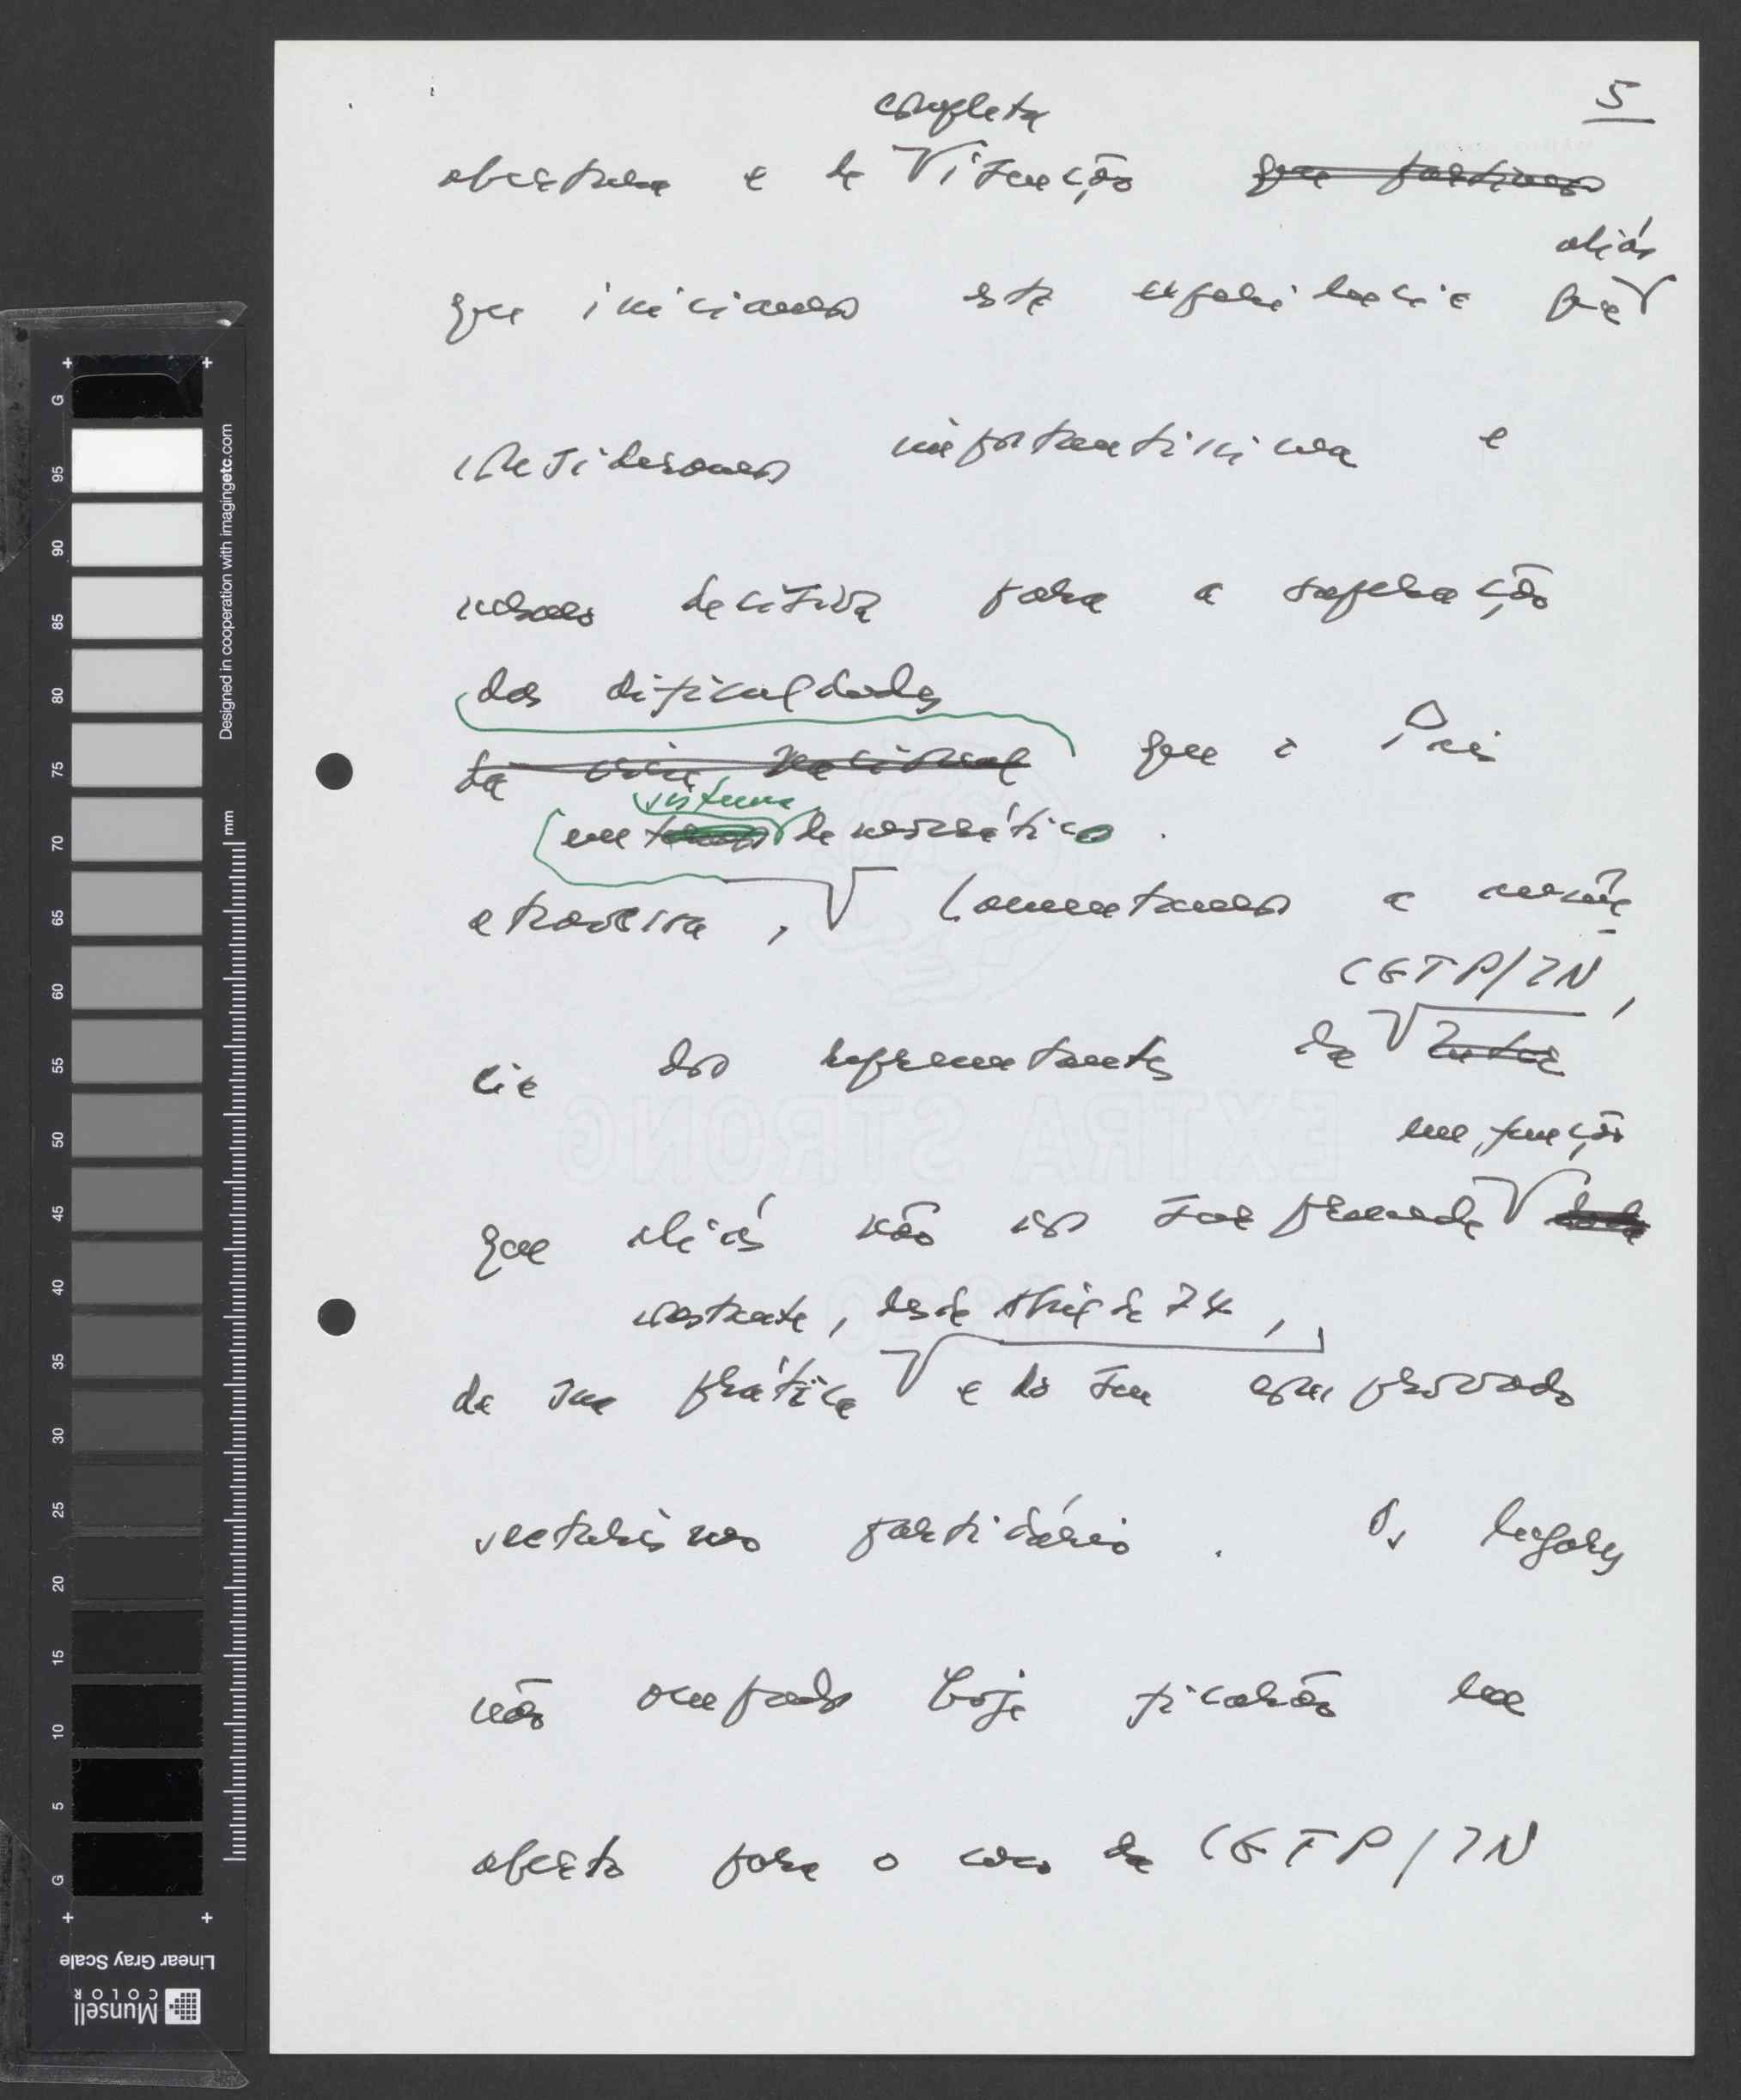 5
completa
abertura e de isenção que partimos
aliás
que iniciamos esta experiência que
consideramos importantíssima e
mesmo decisiva para a superação
das dificuldades
da crise nacional que o País
sistema
em democrático.
atravessa, Lamentamos a ausên-
CGTP/IN,
cia dos representantes da Inter
em função
que aliás não nos surpreende dada
constante, desde Abril de 74,
da sua prática e do seu comprovado
sectarismo partidário. Os lugares
não ocupados hoje ficarão em
aberto para o caso da CGTP/IN
EXTRA STRONG
G
95
90
85
80
75
70
65
60
55
50
45
40
35
30
25
20
15
10
5
G
mm
Designed in cooperation with imagingetc.com
Linear Gray Scale
Munsell
COLOR